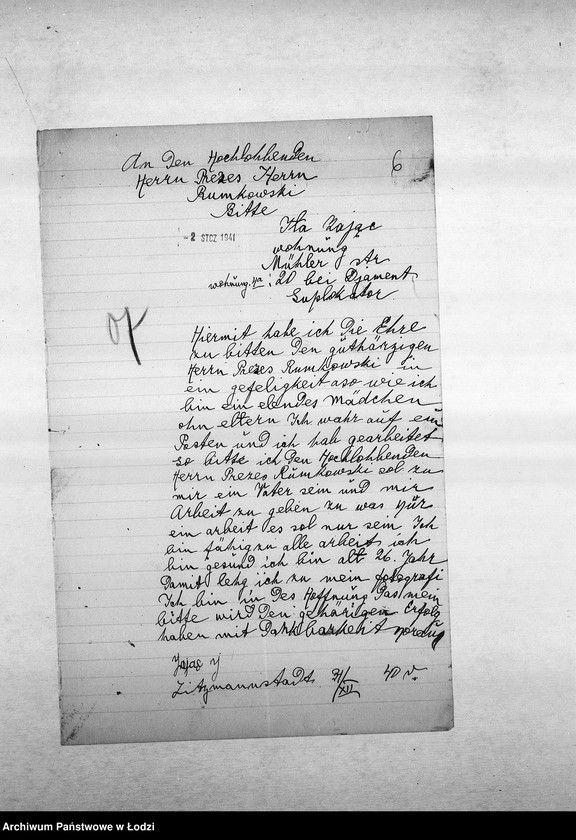 6
An Den Hochlohbenden
Herrn Prezes Herrn
Rumkowski
Bitte
- 2 STCZ 1941
Ita Zając
wohnung
Mühler str
wohnung. 20 bei Djament
Suplokator
Hiermit habe ich Die Ehre
zu bitten Den güthärzigen
Herrn Prezes Rumkowski in
ein gefeligkeit aso wie ich
bin ein elendes Mädchen
ohn eltern Ich wahr auf ein
Posten und ich hab gearbeitet
so bitte ich Den Hochlohbenden
Herrn Prezes Rumkowski sol zu
mir ein Vater sein und mir
Arbeit zu geben zu was nür
ein arbeit es sol nur sein Ich
bin fähig zu alle arbeit ich
bin gesund ich bin alt 26. Jahr
Damit lehg ich zu mein fotografi
Ich bin in Des Hoffnung Das mein
bitte wird Den gehärigen Erfolg
haben mit Dankbarkeit voraus
Zając
Litzmannstadt 31/XII 40
Archiwum Państwowe w Łodzi